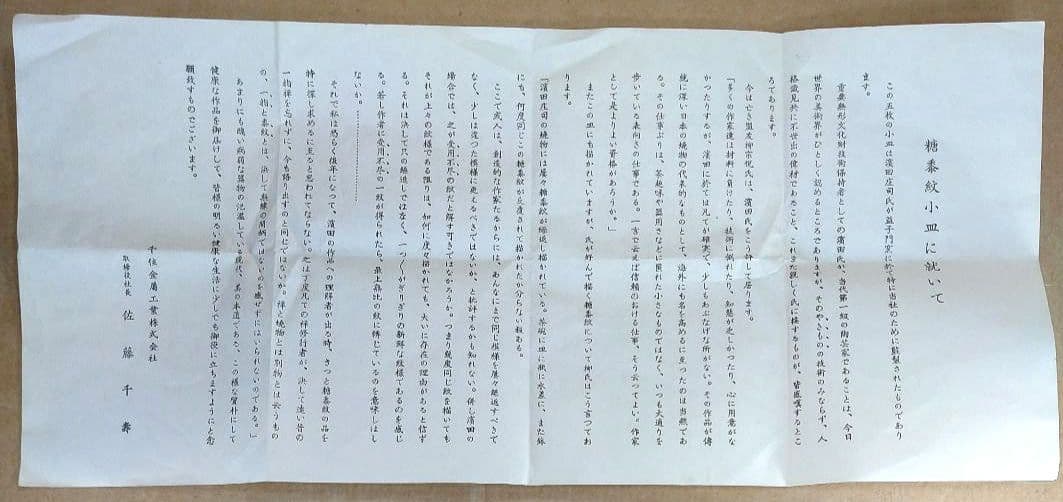 糖黍紋小皿に就いて
この五枚の小皿は濱田庄司氏が益子門窯に於て特に当社のために監製されたものであり
ます。
重要無形文化財技術保持者としての濱田氏が、当代第一級の陶芸家であることは、今日
世界の美術界がひとしく認めるところでありますが、そのやきものの技術のみならず、人
格識見共に不世出の偉材であること、これまた親しく氏に接するものが、皆感嘆するとこ
ろであります。
今は亡き盟友柳宗悦氏は、濱田氏をこう評して居ります。
「多くの作家達は材料に負けたり、技術に倒れたり、知慧が乏しかつたり、心に用意がな
かつたりするが、濱田に於ては凡てが確実で、少しもあぶなげな所がない。その作品が傳
統に深い日本の焼物の代表的なものとして、海外にも名を高めるに至つたのは当然であ
る。その仕事ぶりは、茶趣味や器用さなどに囚れた小さなものではなく、いつも大通りを
歩いている表向きの仕事である。一言で云えば信頼のおける仕事、そう云つてよい。作家
として是より上い資格があろうか。」
またこの皿にも描かれていますが、氏が好んで描く糖黍紋について柳氏はこう言つてお
ります。
「濱田庄司の焼物には屡々糖黍紋が繰返し描かれている。茶碗に皿に瓶に水差に、また鉢
にも、何度同じこの糖黍紋が反覆されて描かれたか分らない程ある。
ここで或人は、創造的な作家たるからには、あんなにまで同じ模様を屡々繰返すべきで
なく、少しは違つた模様に更えるべきではないか、と批評するかも知れない。併し濱田の
場合では、之が受用不尽の紋だと解す可きではなかろうか。つまり幾度同じ紋を描いても
それが上々の紋様である限りは、如何に度々描かれても、大いに存在の理由があると信ず
る。それは決して只の繰返しではなく、一つ一つぎりぎりの新鮮な紋様であるのを感じ
る。若し作者に受用不尽の一紋が得られたら、最上無比の紋に恃しているのを意味しはし
ないか。………………………
それで私は恐らく後年になつて、濱田の作品への理解者が出る時、きつと糖黍紋の品を
特に探し求めるに至ると思われてならない。之は丁度凡ての禅修行者が、決して遠い昔の
一指禅を忘れずに、今も語り出すのと同じではないか。禅と焼物とは別物とは云うもの
の、一指と黍紋とは、決して無縁の間柄ではないのを感ぜずにはいられないのである。」
あまりにも醜い病弱な器物の氾濫している現代、美の本道である、この様な質朴にして
健康な作品を御届けして、皆様の明るい健康な生活に少しでも御役に立ちますようにと念
願致すものでございます。
千住金属工業株式会社
取締役社長 佐藤千壽